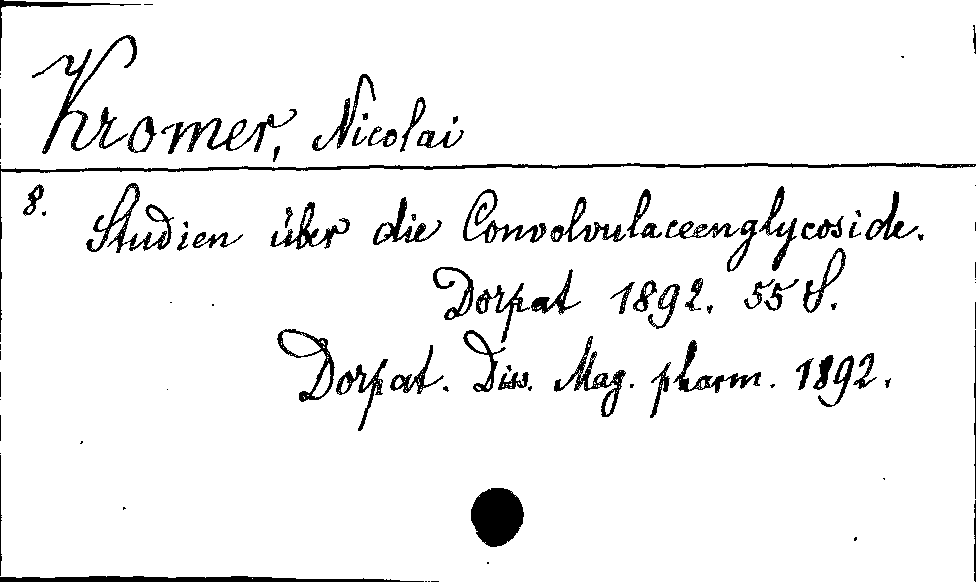 Kromer, Nicolai
8. Studien über die Convolvulaceenglycoside.
Dorpat 1892. 55 S.
Dorpat. Diss. Mag. pharm. 1892.